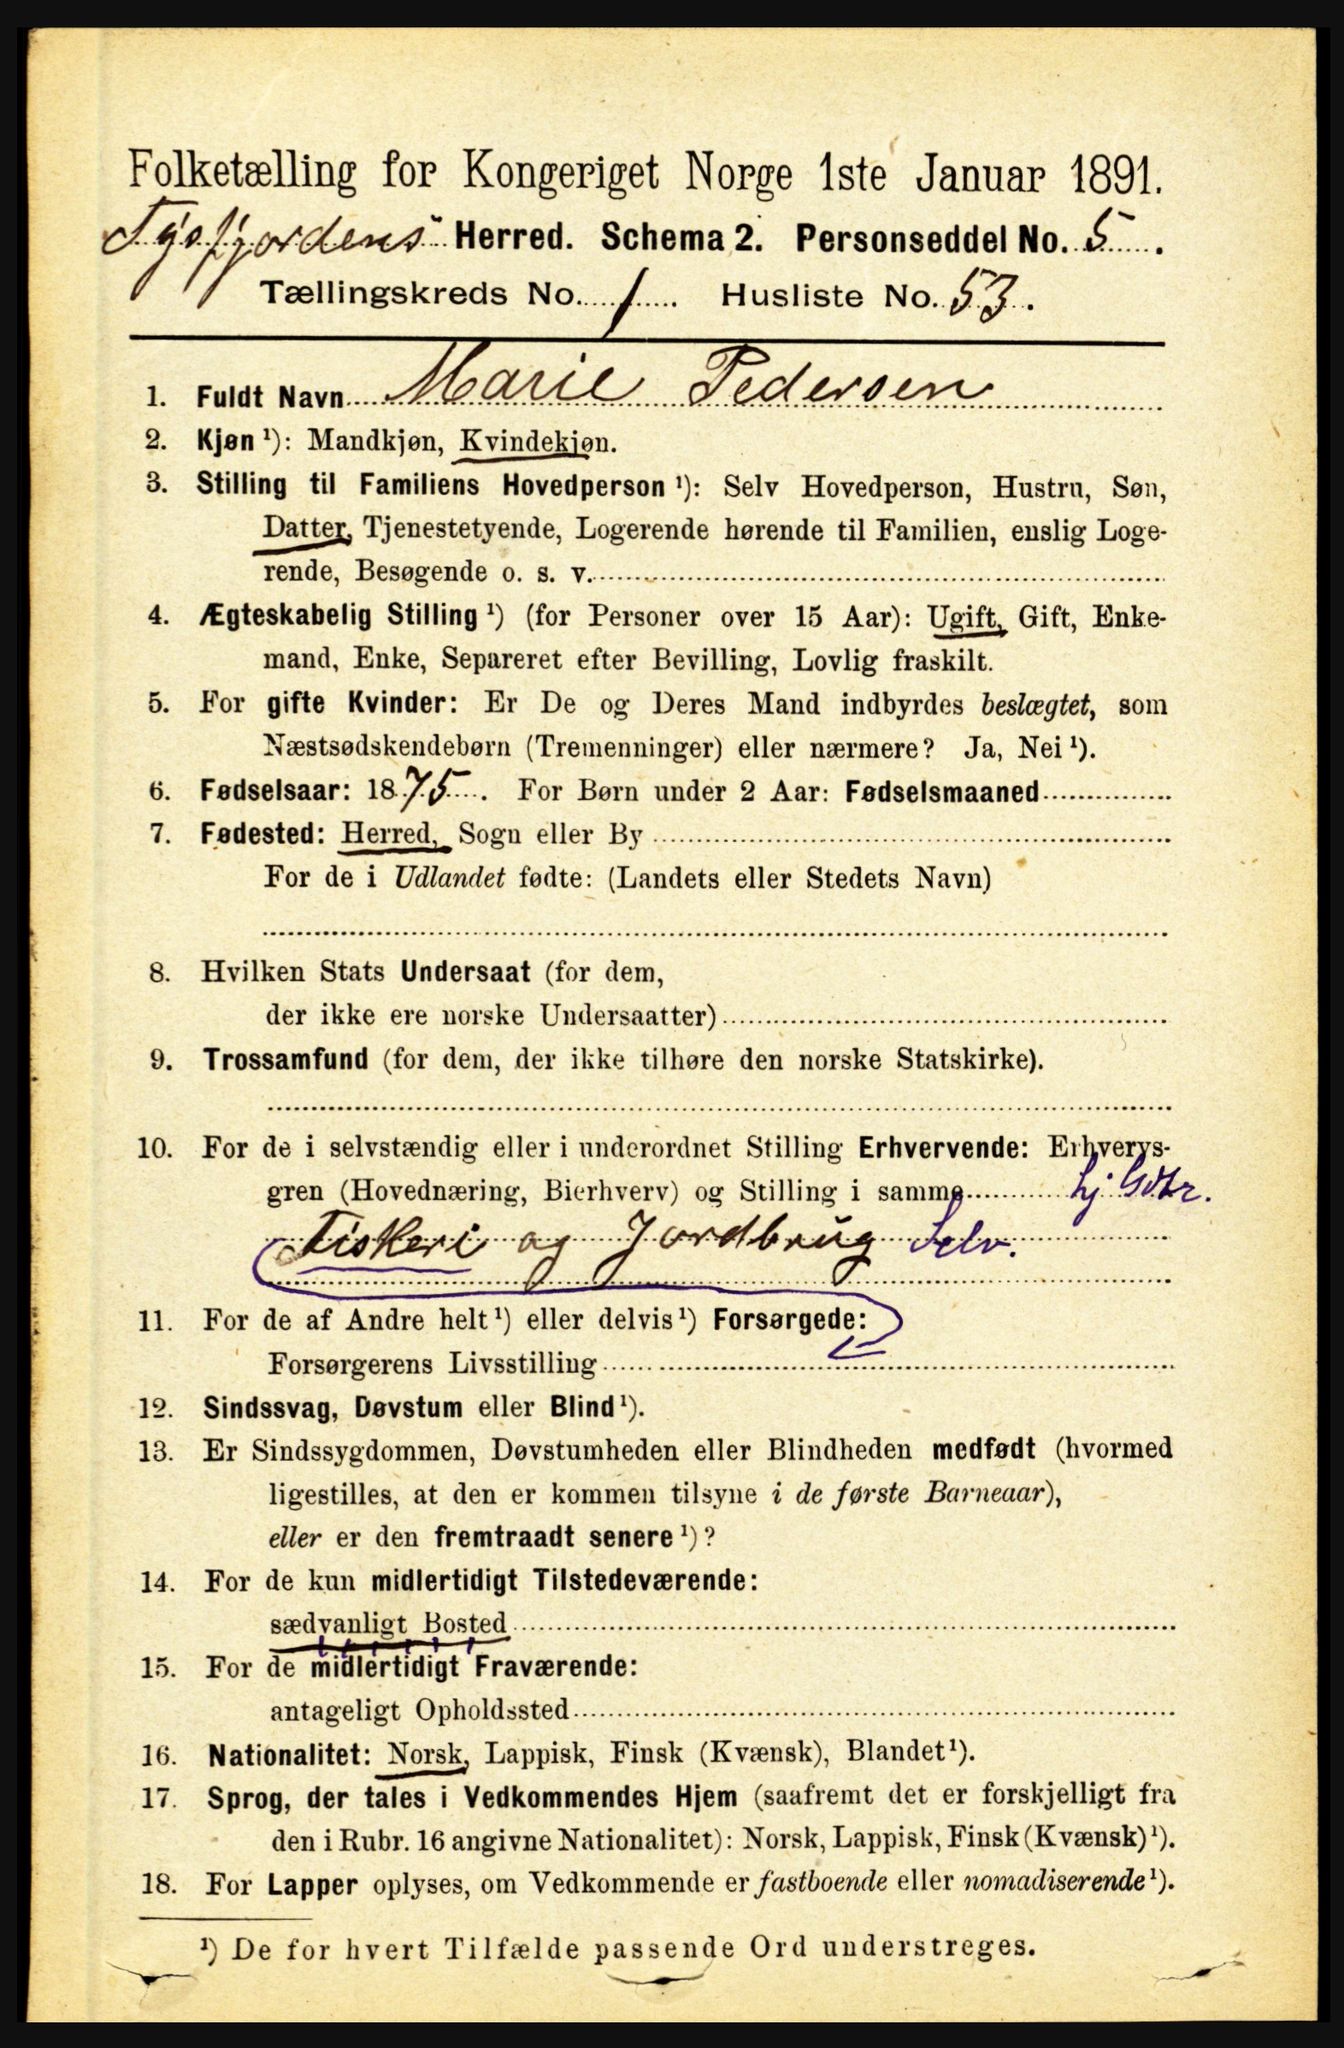 Folketælling for Kongeriget Norge 1ste Januar 1891.
Tysfjordens Herred. Schema 2. Personseddel No. 5.
Tællingskreds No. 1. Husliste No. 53.
1. Fuldt Navn Marie Pedersen
2. Kjøn ¹): Mandkjøn, Kvindekjøn.
3. Stilling til Familiens Hovedperson ¹): Selv Hovedperson, Hustru, Søn,
Datter, Tjenestetyende, Logerende hørende til Familien, enslig Loge-
rende, Besøgende o. s. v.
4. Ægteskabelig Stilling ¹) (for Personer over 15 Aar): Ugift, Gift, Enke-
mand, Enke, Separeret efter Bevilling, Lovlig fraskilt.
5. For gifte Kvinder: Er De og Deres Mand indbyrdes beslægtet, som
Næstsødskendebørn (Tremenninger) eller nærmere? Ja, Nei ¹).
6. Fødselsaar: 1875. For Børn under 2 Aar: Fødselsmaaned
7. Fødested: Herred, Sogn eller By
For de i Udlandet fødte: (Landets eller Stedets Navn)
8. Hvilken Stats Undersaat (for dem,
der ikke ere norske Undersaatter)
9. Trossamfund (for dem, der ikke tilhøre den norske Statskirke).
10. For de i selvstændig eller i underordnet Stilling Erhvervende: Erhvervs-
gren (Hovednæring, Bierhverv) og Stilling i samme hj
Fiskeri og Jordbrug Selv.
11. For de af Andre helt ¹) eller delvis ¹) Forsørgede:
Forsørgerens Livsstilling
12. Sindssvag, Døvstum eller Blind ¹).
13. Er Sindssygdommen, Døvstumheden eller Blindheden medfødt (hvormed
ligestilles, at den er kommen tilsyne i de første Barneaar),
eller er den fremtraadt senere ¹)?
14. For de kun midlertidigt Tilstedeværende:
sædvanligt Bosted
15. For de midlertidigt Fraværende:
antageligt Opholdssted
16. Nationalitet: Norsk, Lappisk, Finsk (Kvænsk), Blandet ¹).
17. Sprog, der tales i Vedkommendes Hjem (saafremt det er forskjelligt fra
den i Rubr. 16 angivne Nationalitet): Norsk, Lappisk, Finsk (Kvænsk) ¹).
18. For Lapper oplyses, om Vedkommende er fastboende eller nomadiserende ¹).
¹) De for hvert Tilfælde passende Ord understreges.